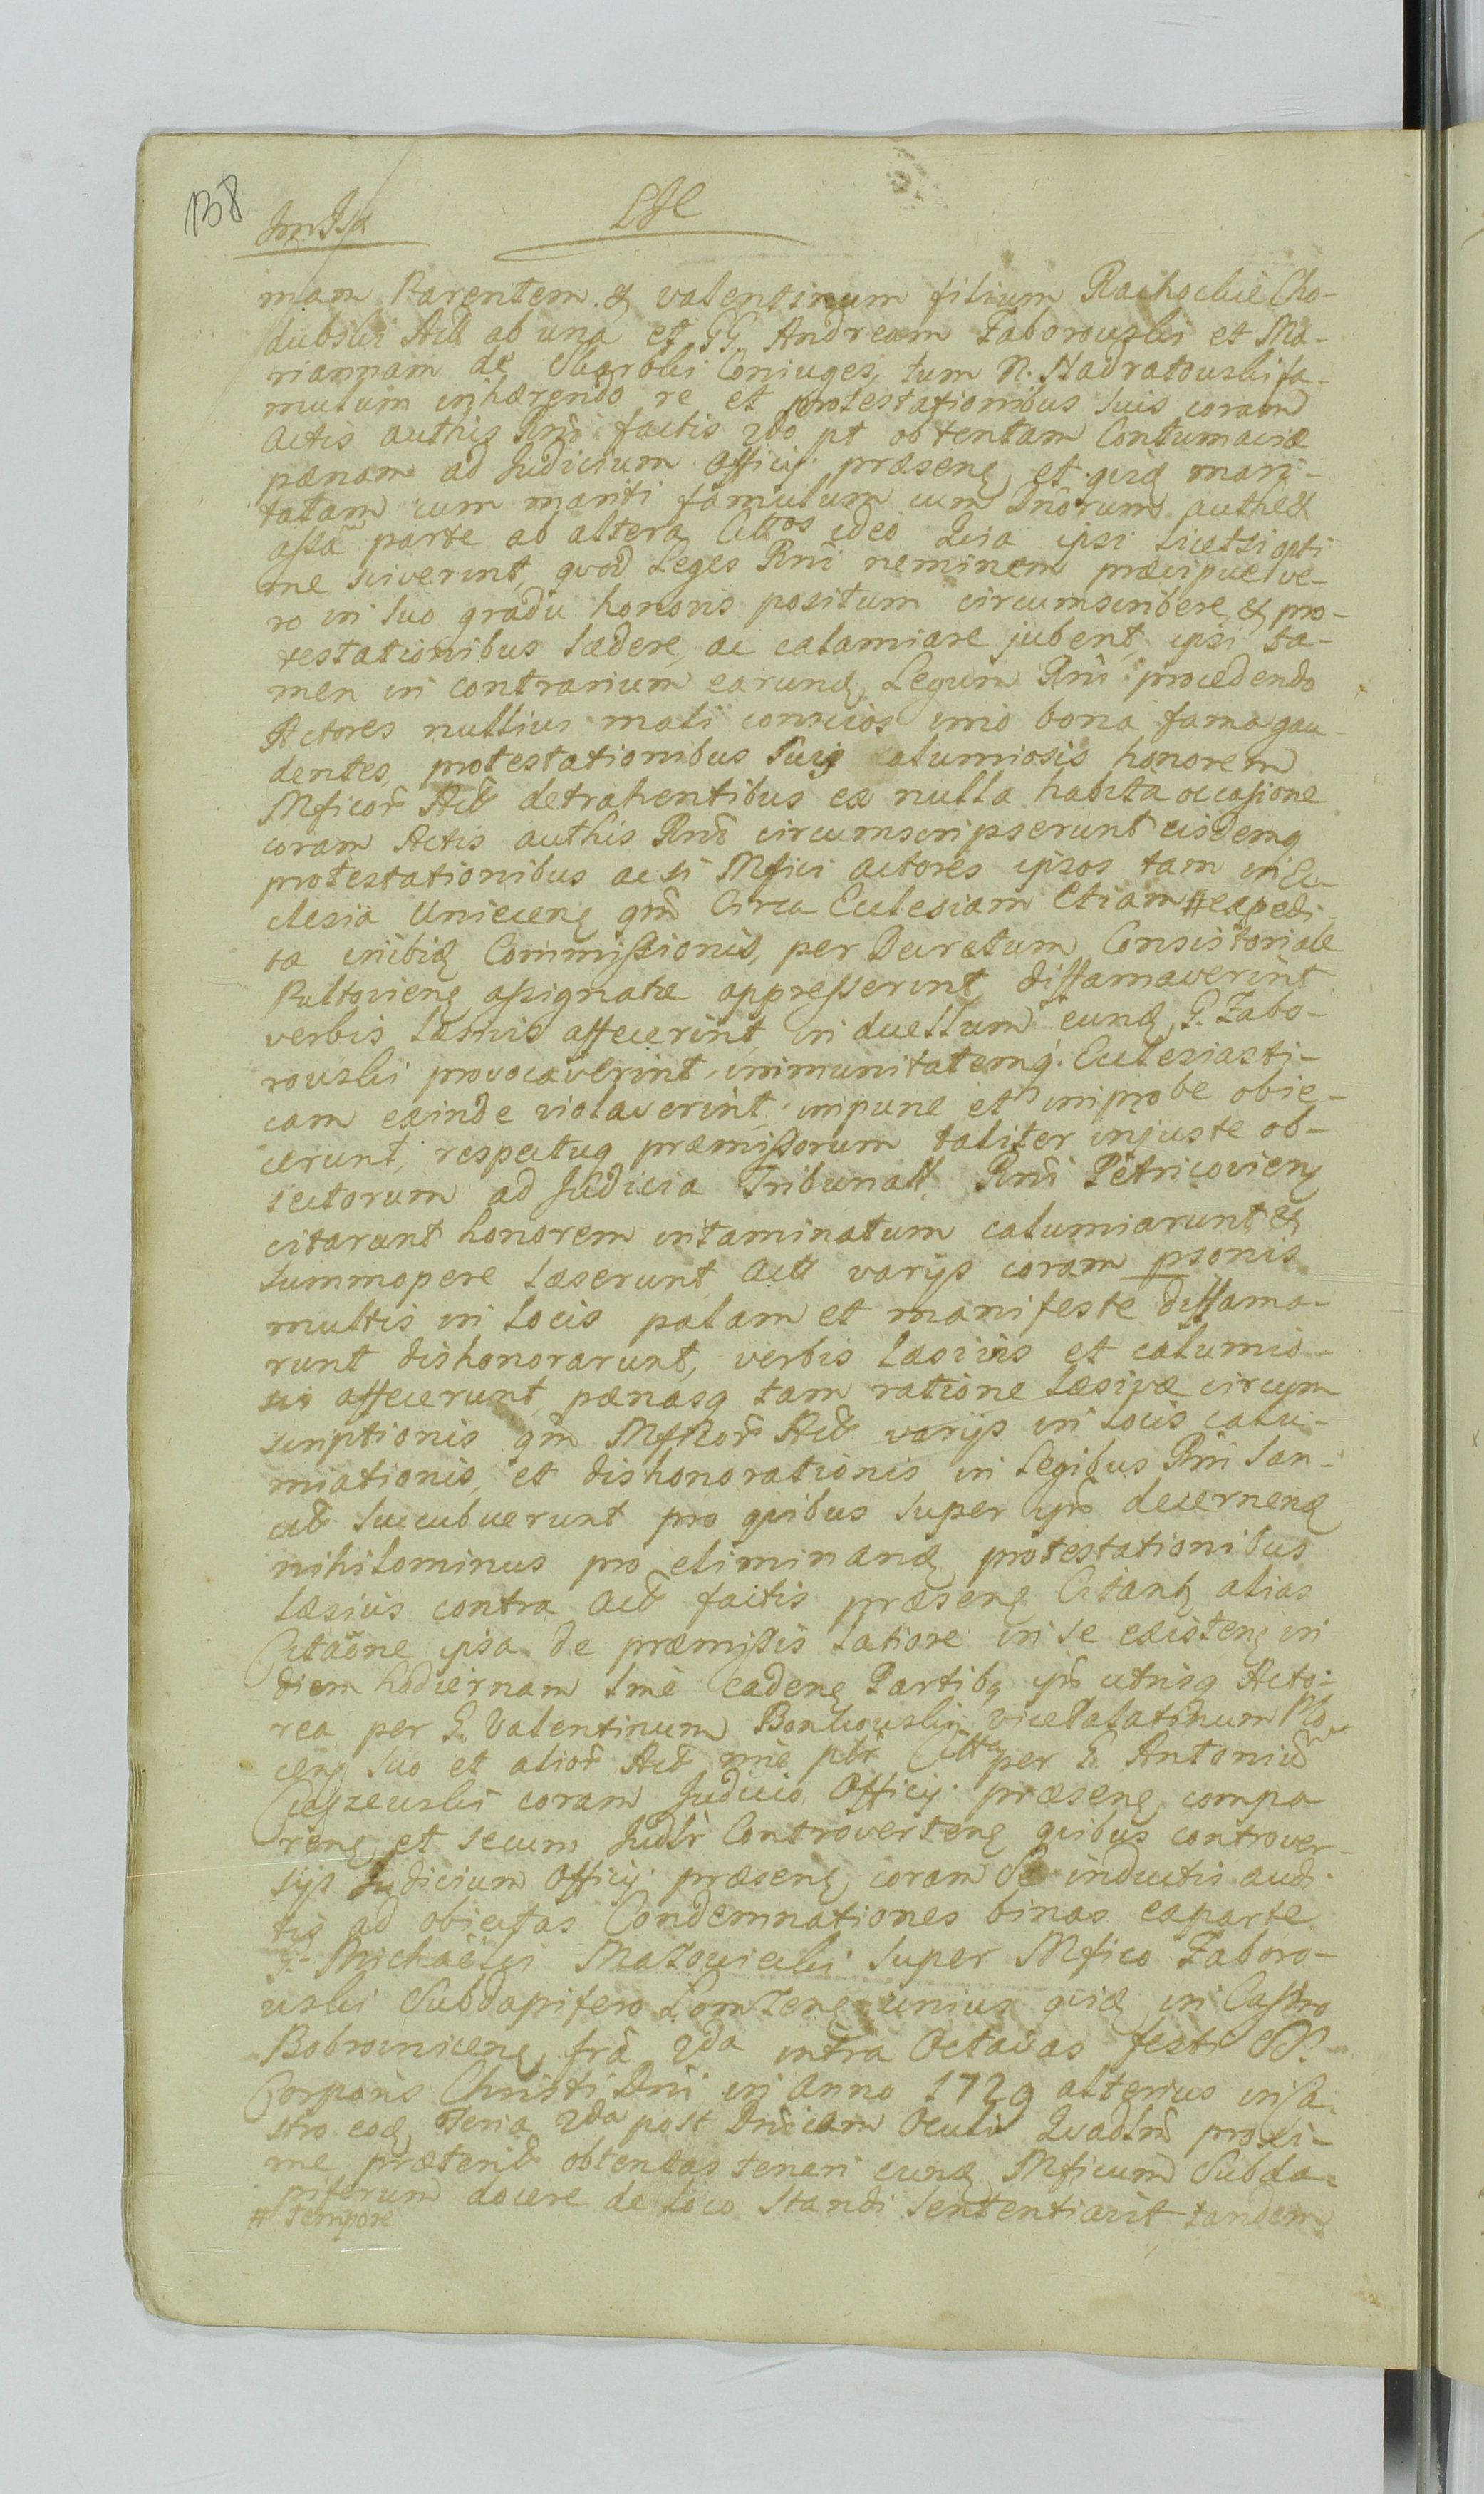 138
mam Parentem & valentinum filium Rachockie Cho-
dubski Act ab una et GG Andream Zaborowski et Ma-
riannam de Skarbki Coniuges, tum N. Nadratowski fa-
mulum inhærendo re et protestationibus suis coram
Actis authis Rni factis 2do pt obtentam Contumaciæ
pænam ad Judicium Officij præsenę et quę mari-
tatam cum mariti famulum cum Dnorum authe &
assã parte ab altera Cittos ideo Quia ipsi licet si opti
me sciverint, quod Leges Rni neminem præcipue ve-
ro in suo gradu honoris positum circumscribere & pro-
testationibus lædere, ac calumiare jubent, ipsi ta-
men in contrarium earunę Legum Rni procedendo
Actores nullius mali conscios imo bona fama gau-
dentes, protestationibus suis calumiosis honorem
Mficor Act detrahentibus ex nulla habita occasione
coram Actis authis Rni circumscripserunt eisdemq
protestationibus ac si Mfici actores ipsos tam in Ec-
clesia Uniecenę qm Circa Ecclesiam Etiam # expedi-
ta inibię Commissionis, per Decretum Consistoriale
Pultovienę assignatæ oppresserint diffamaverint
verbis læsivis affecerint, in duellum eunę G. Zabo-
rowski provocaverint, inmunitatemq. Ecclesiasti-
cam exinde violaverint, impune et improbe obie-
cerunt, respectuq præmissorum taliter injuste ob-
jectorum ad Judicia Tribunall Rni Petricovienę
citarunt honorem intaminatum calumiarunt &
summopere læserunt, Act varijs coram psonis
multis in locis palam et manifeste diffama-
runt dishonorarunt, verbis læsivis et calumio-
sis affecerunt, pænasq tam ratione læsivæ circum
scriptionis qm Mficor Act varijs in locis calu-
miationis, et dishonorationis in Legibus Rni san-
cit succubuerunt pro quibus super ipsis decernenę
nihilominus pro eliminanę protestationibus
læsivis contra Act factis præsenę Citantę alias
Citaõne ipsa de præmissis latiore in se existenę in
diem hodiernam lmẽ cadenę Partibq ipis utrisq Acto-
rea per G. Valentinum Bonkowski vicePalatinum Plo
cenę suo et alior Act nnie plr Citta per G. Antoniũ
Ciegzewski coram Judicio Officij præsenę compa
renę et secum Judlr Controvertenę quibus controver-
sijs Judicium Officij præsenę coram Se inductis audi-
tis ad obiectas Condemnationes binas exparte
G. Michaelis Mazowiecki super Mfico Zaboro-
wski Subdapifero Łomzenę unius quię in Castro
Bobrownicenę fra 2da intra Octavas festi SS.
Corporis Christi Dni in Anno 1729 alterius in Ca-
stro eoę Feria 2da post Dnicam Oculi Quadlm proxi-
me præterit obtentas teneri eunę Mficum Subda-
piferum docere de loco standi sententiavit tandem
# tempore